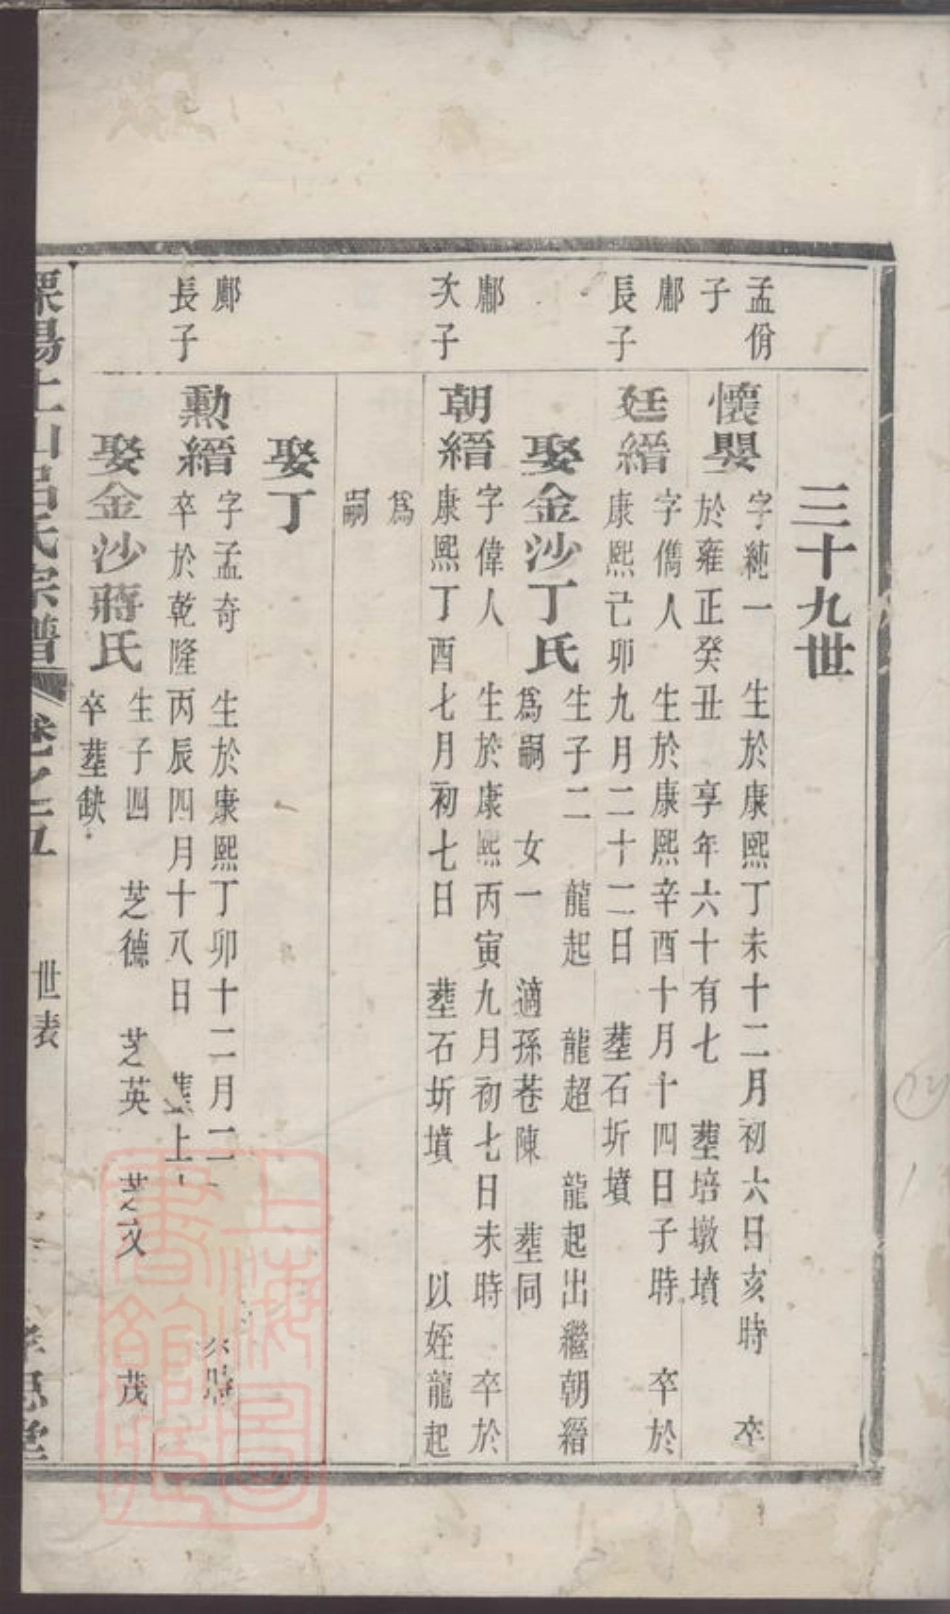 三十九世
孟俏
子
懷嬰
字純一 生於康熙丁未十二月初六日亥時 卒
於雍正癸丑 享年六十有七 塟培墩墳
鄘
長子
廷縉
字儁人 生於康熙辛酉十月十四日子時 卒於
康熙己卯九月二十二日 塟石圻墳
娶金沙丁氏
生子二 龍起 龍超 龍起出繼朝縉
爲嗣 女一 適孫巷陳 塟同
鄘
次子
朝縉
字偉人 生於康熙丙寅九月初七日未時 卒於
康熙丁酉七月初七日 塟石圻墳 以姪龍起
爲
嗣
娶丁
鄺
長子
勲縉
字孟奇 生於康熙丁卯十二月二
卒於乾隆丙辰四月十八日 塟上
娶金沙蔣氏
生子四 芝德 芝英 芝文 茂
卒塟缺
溧陽上山呂氏宗譜 卷之五 世表
上海圖書館藏